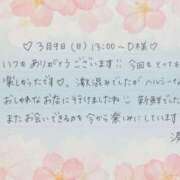 ♡ 3月9日(日) 13:00〜D様 ♡
いつもありがとうございます!! 今回もとっても
楽しかったです♡。激混みでしたがヘルシーな
おしゃれなお店に行けましたね☺ 新鮮でした
またお会いできるのを今から楽しみにしています